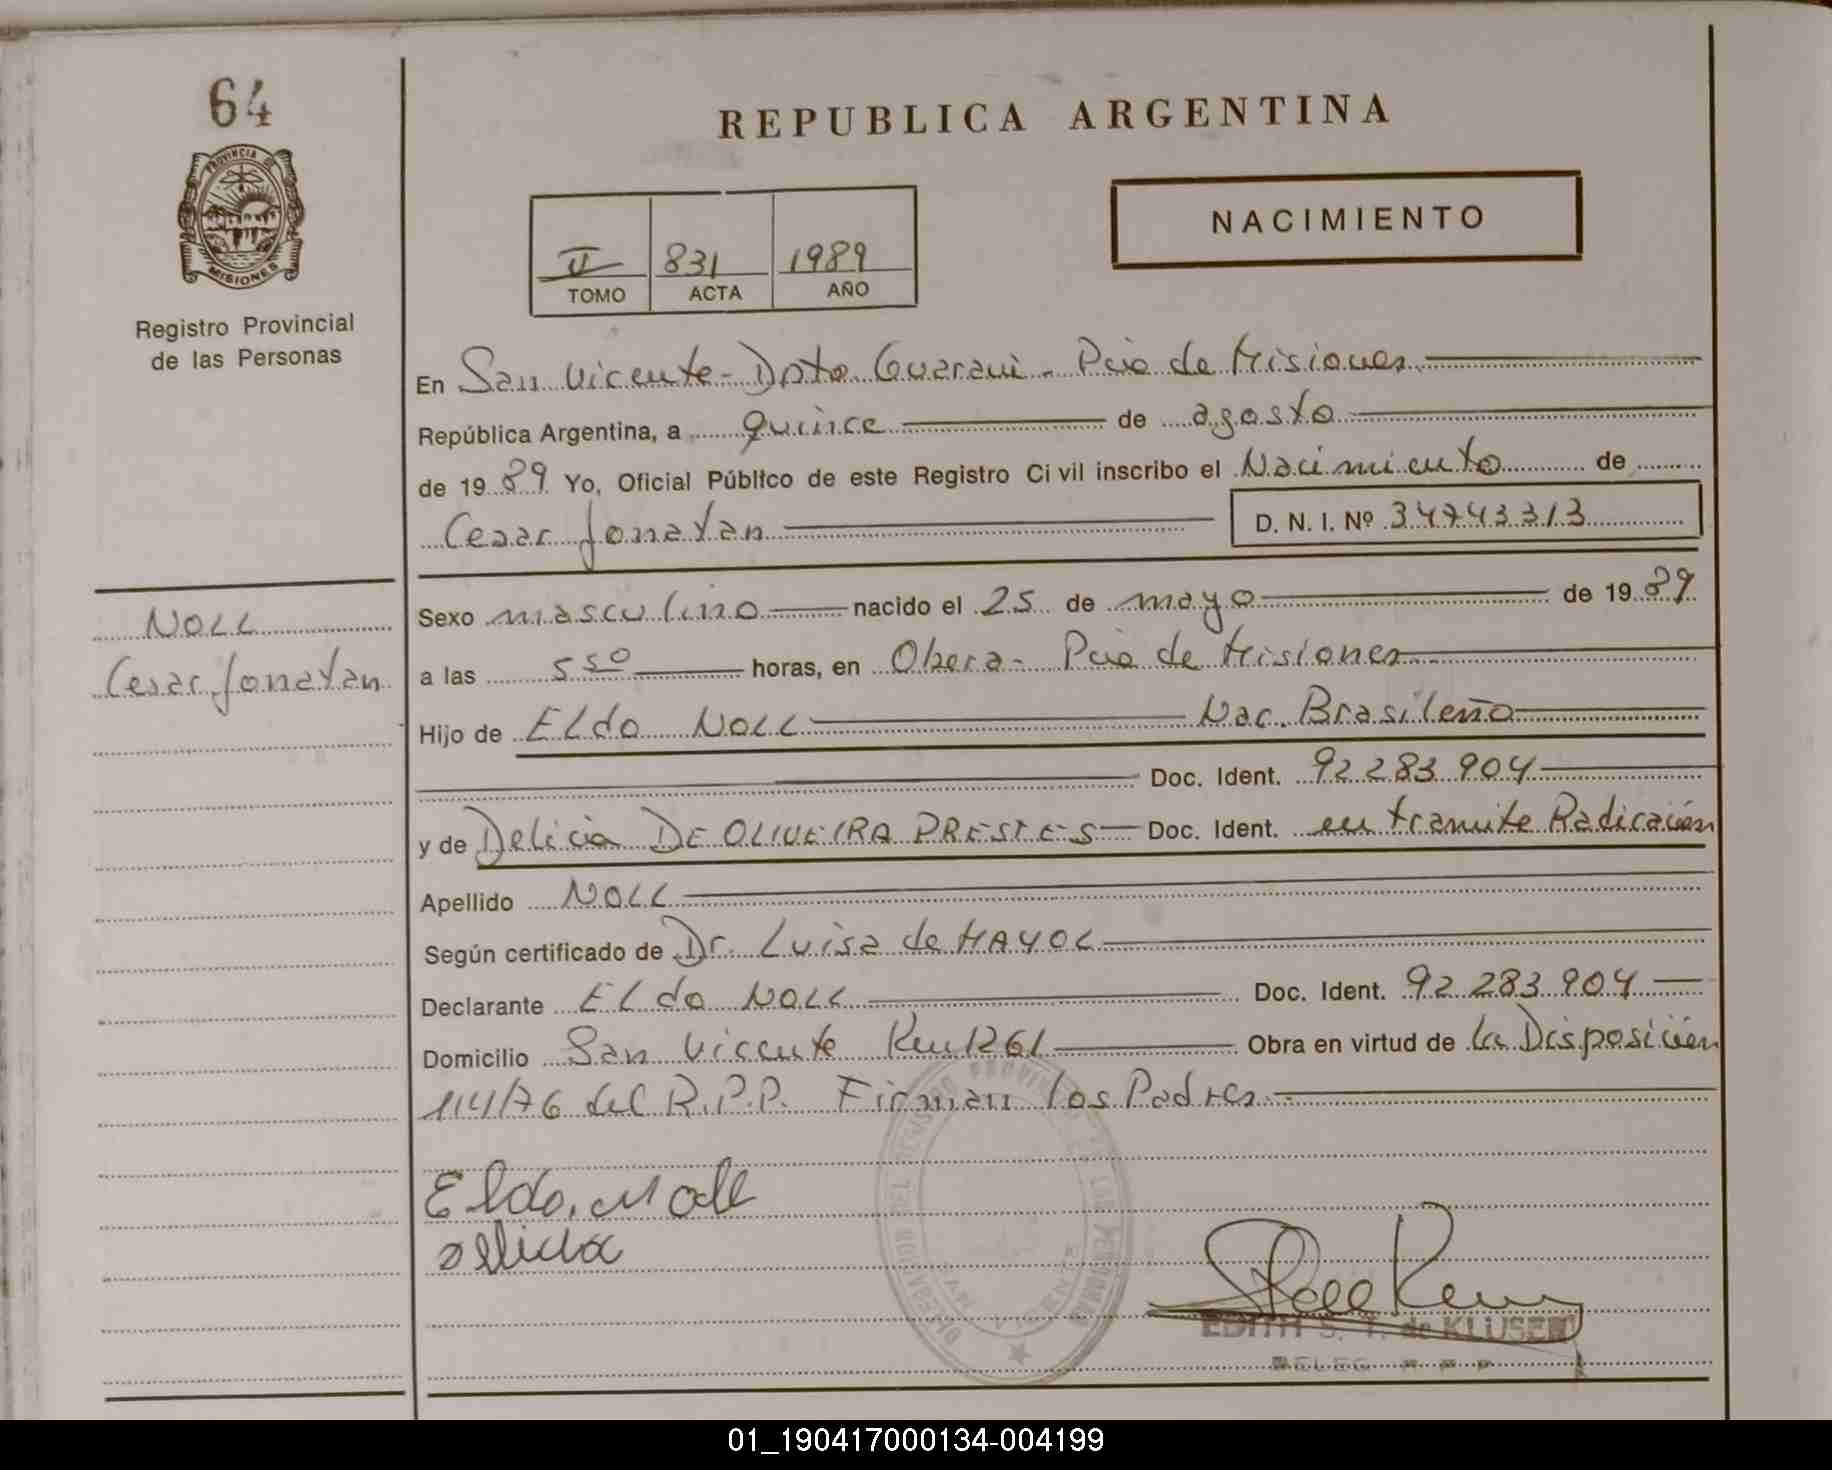 64
REPUBLICA ARGENTINA
PROVINCIA DE
MISIONES
NACIMIENTO
II 831 1989
TOMO ACTA AÑO
Registro Provincial
de las Personas
En San Vicente - Dpto Guarani - Pcia de Misiones
República Argentina, a quince de agosto
de 1989 Yo, Oficial Público de este Registro Civil inscribo el Nacimiento de
Cesar Jonatan D. N. I. Nº 34743313
NOLL
Cesar Jonatan
Sexo masculino nacido el 25 de mayo de 1989
a las 5 50 horas, en Obera - Pcia de Misiones
Hijo de ELdo NOLL Nac. Brasileño
Doc. Ident. 92 283 904
y de Delicia DE OLIVEIRA PRESTES Doc. Ident. en tramite Radicación
Apellido NOLL
Según certificado de Dr. Luisa de MAYOL
Declarante ELdo NOLL Doc. Ident. 92 283 904
Domicilio San Vicente Km 1261 Obra en virtud de la Disposición
114/76 del R.P.P. Firman los Padres
Eldo Noll
delicia
EDITH S. T. de KLUSENER
DELEG. R. P. P.
01_190417000134-004199